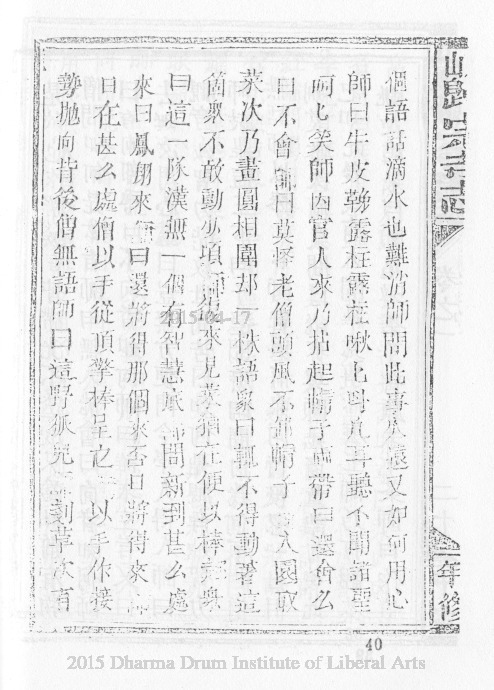 個語話滴水也難消師問此事久遠又如何用心
師曰牛皮鞔露柱露柱啾七叫凡耳聽不聞諸聖
呵七笑師因官人來乃拈起帽子兩帶曰還會么
曰不會師曰莫怪老僧頭風不卸帽子 入園取
菜次乃畫圓相圍却一株語衆曰輒不得動著這
箇衆不敢動少頃師 來見菜猶在便以棒 衆
曰這一隊漢無一個有智慧底師問新到甚么處
來曰鳳翔來師曰還將得那個來否曰將得來師
曰在甚么處僧以手從頂擎棒呈之 以手作接
勢拋向背後僧無語師曰這野狐兒 剗草次有
年修
40
2015-04-17
2015 Dharma Drum Institute of Liberal Arts